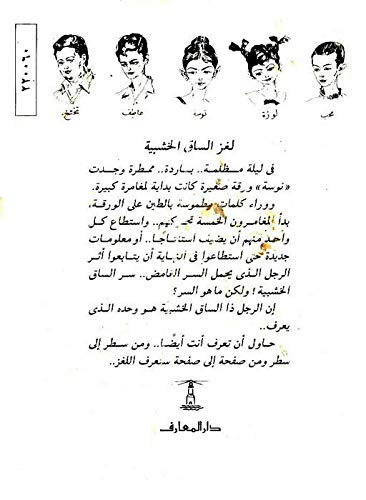 ٢٢٠٠٦٠
تختخ عاطف نوسة لوزة محب
لغز الساق الخشبية
فى ليلة مظلمة.. باردة.. ممطرة وجدت
«نوسة» ورقة صغيرة كانت بداية لمغامرة كبيرة.
ووراء كلمات مطموسة بالطين على الورقة،
بدأ المغامرون الخمسة تحركهم.. واستطاع كل
واحد منهم أن يضيف استنتاجًا.. أو معلومات
جديدة حتى استطاعوا فى النهاية أن يتابعوا أثر
الرجل الذى يحمل السر الغامض.. سر الساق
الخشبية! ولكن ما هو السر؟
إن الرجل ذا الساق الخشبية هو وحده الذى
يعرف..
حاول أن تعرف أنت أيضًا.. ومن سطر إلى
سطر ومن صفحة إلى صفحة ستعرف اللغز..
دار المعارف